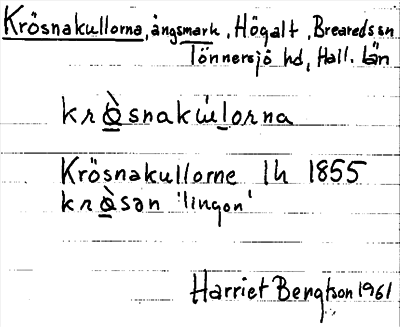 Krösnakullorna, ångsmark, Högalt, Breareds sn
Tönnersjö hd, Hall. län
krò̲snakù̲lorna
Krösnakullorne lh 1855
krò̲sən 'lingon'
Harriet Bengtson 1961